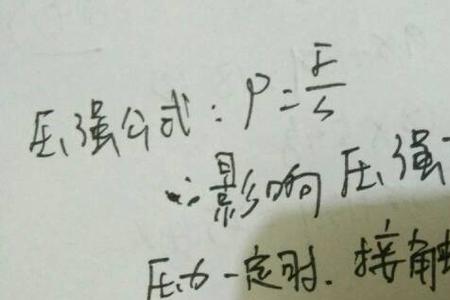 压强公式：P=F/S
∴影响压强
压力一定时.接触